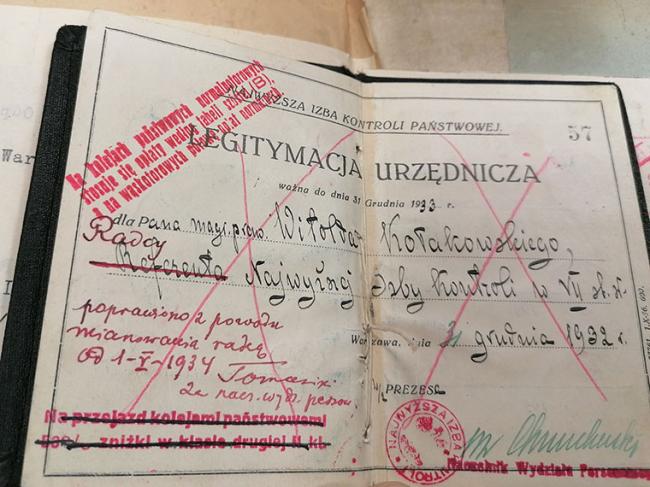 Na kolejach państwowych normalnotorowych
stosuje się opłaty według tabeli stref (B),
a na wąskotorowych normalnej.
NAJWYŻSZA IZBA KONTROLI PAŃSTWOWEJ.
57
LEGITYMACJA URZĘDNICZA
ważna do dnia 31 Grudnia 1933 r.
dla Pana mag. praw Witolda Kołakowskiego,
Radcy
Referenta Najwyższej Izby Kontroli w VII st. sł.
poprawiono z powodu
mianowania radcą
od 1-I-1934
Warszawa, dnia 21 grudnia 1932 r.
PREZES
Na przejazd kolejami państwowemi
50% zniżki w klasie drugiej II kl.
NAJWYŻSZA IZBA KONTROLI
Naczelnik Wydziału
War